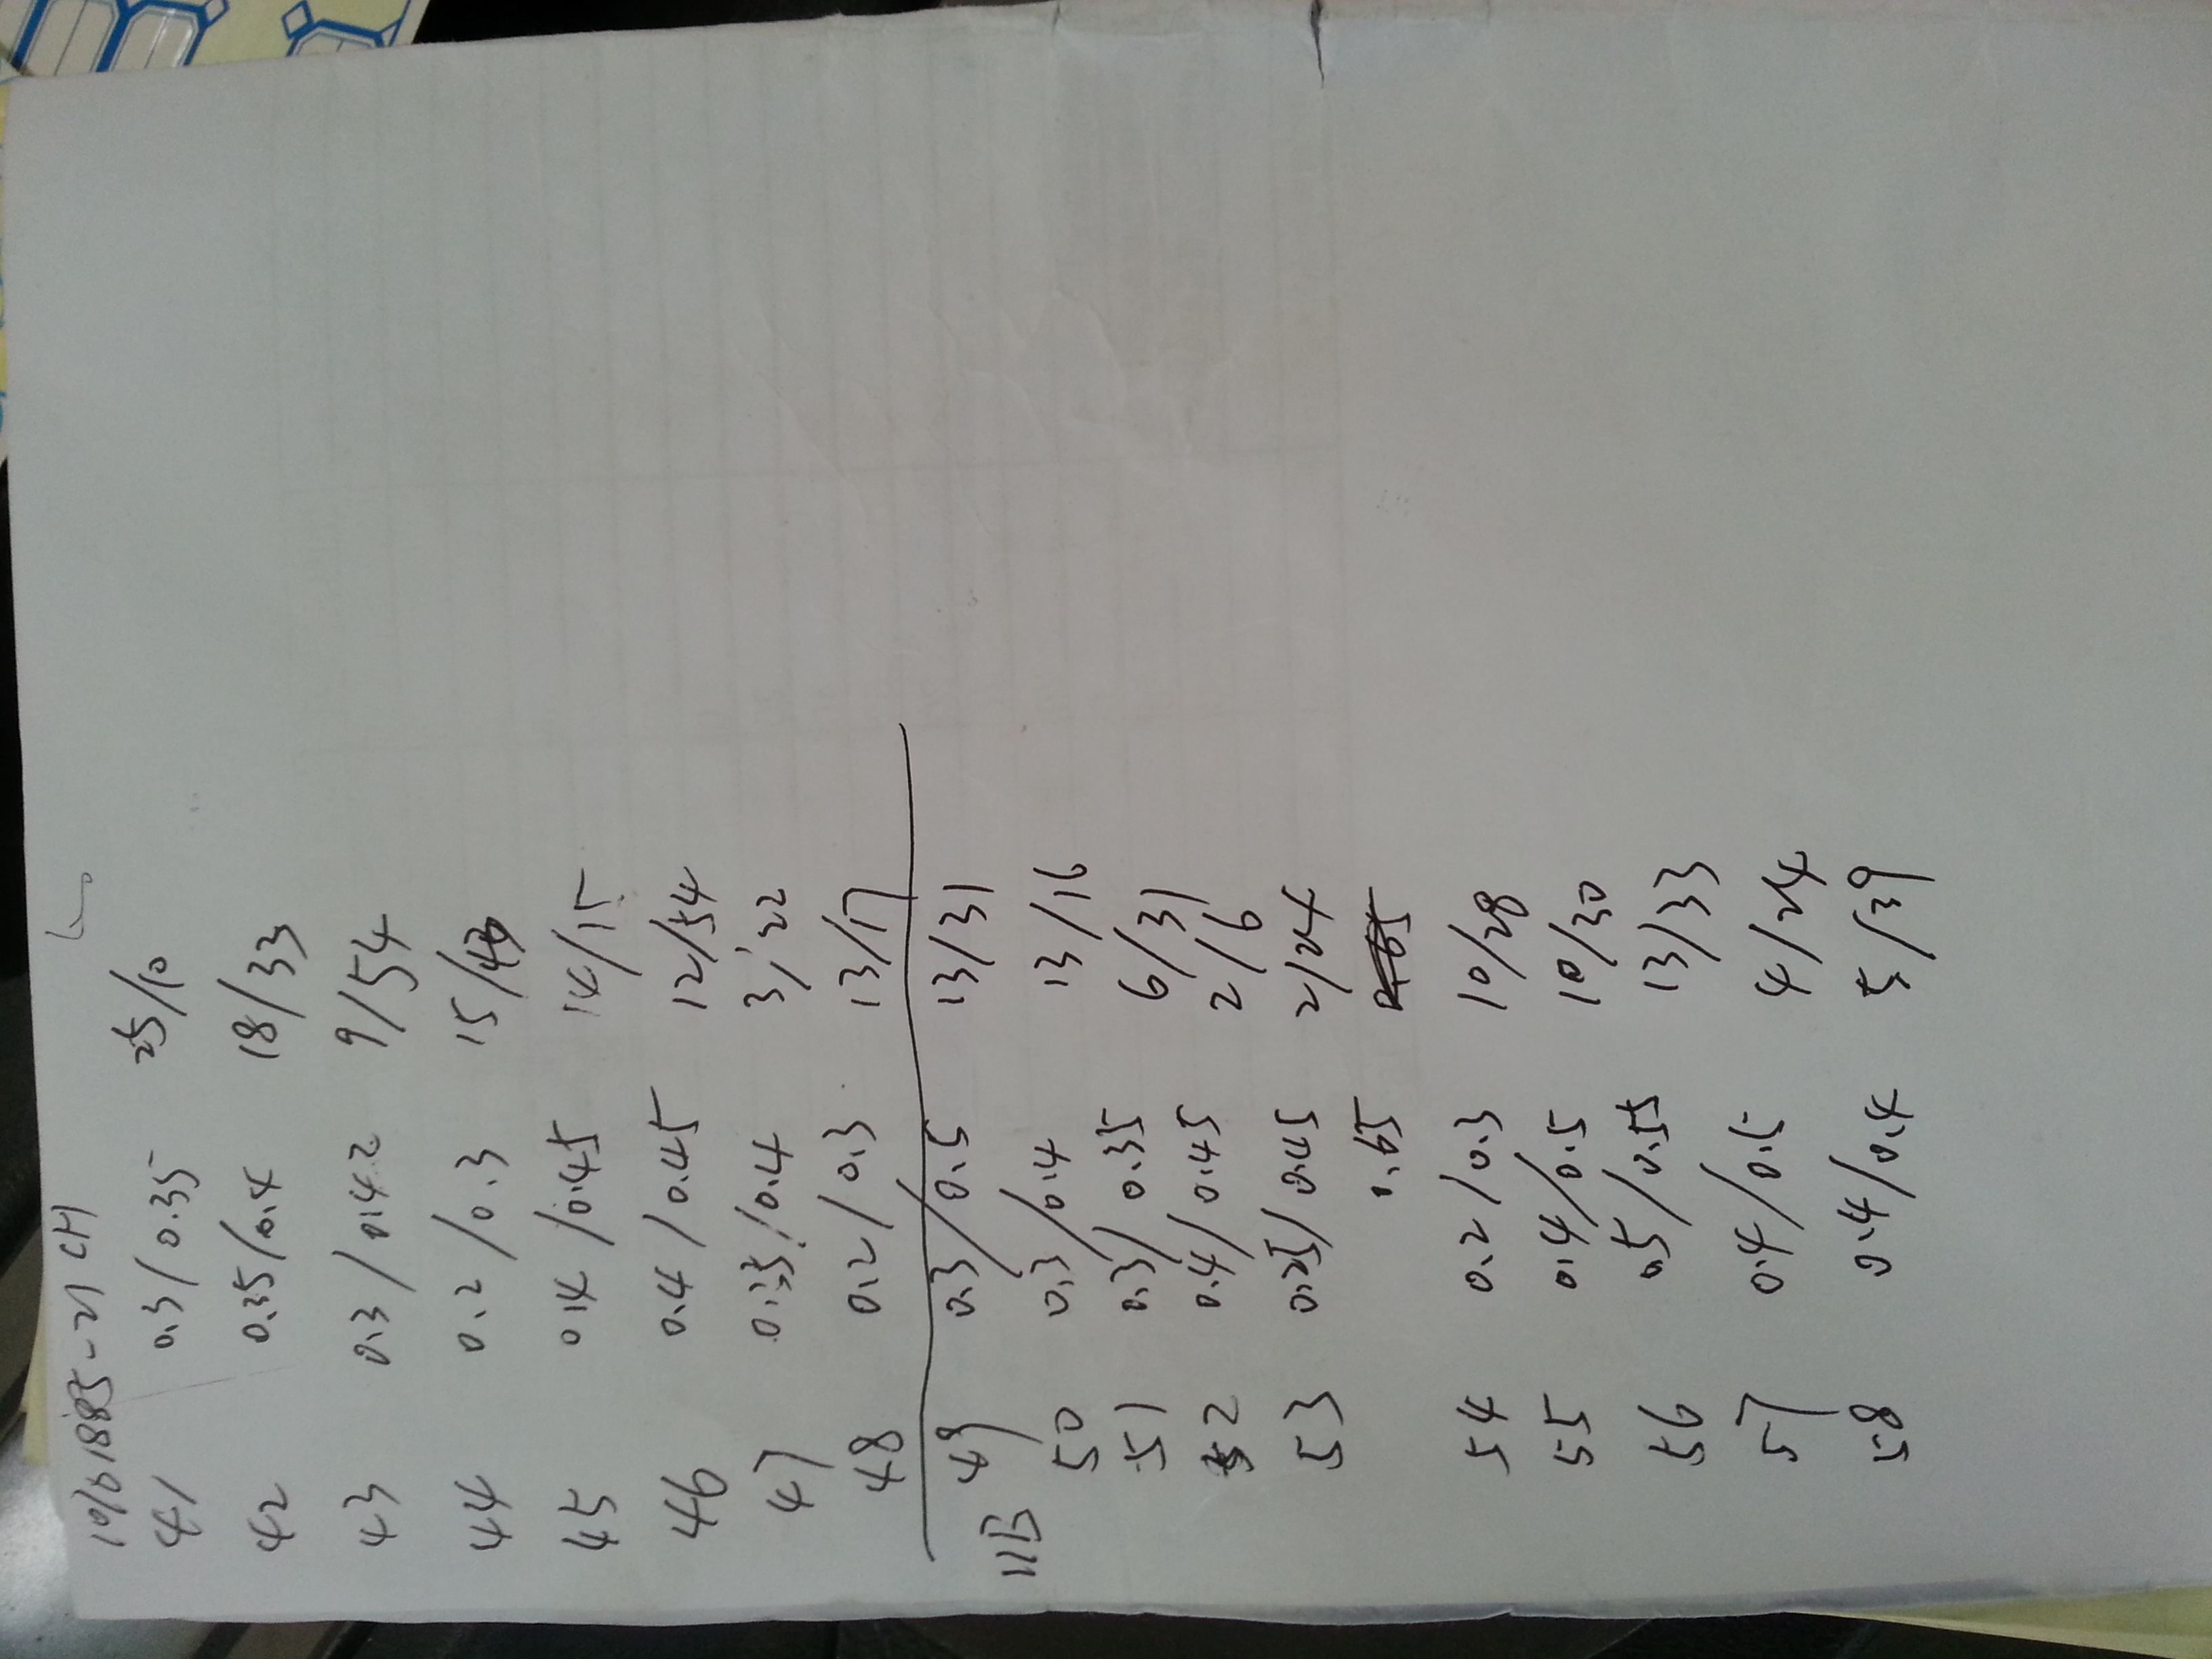 41 0.3/0.35 25/10
42 0.35/0.4 18/33
43 0.3/0.42 9/54
44 0.2/0.3 15/
45 0.4/0.45 14/15
46 0.4/0.45 12/54
47 0.35/0.4 3/22
48 0.2/0.3 13/17
49 0.3/0.5 13/31
50 0.3/0.4 13/16
51 0.3/0.35 6/31
52 0.4/0.45 2/6
53 0.25/0.45 2/24
0.65
54 0.2/0.3 10/28
55 0.4/0.5 10/30
56 0.5/0.55 13/33
57 0.4/0.5 4/24
58 0.4/0.4 5/39